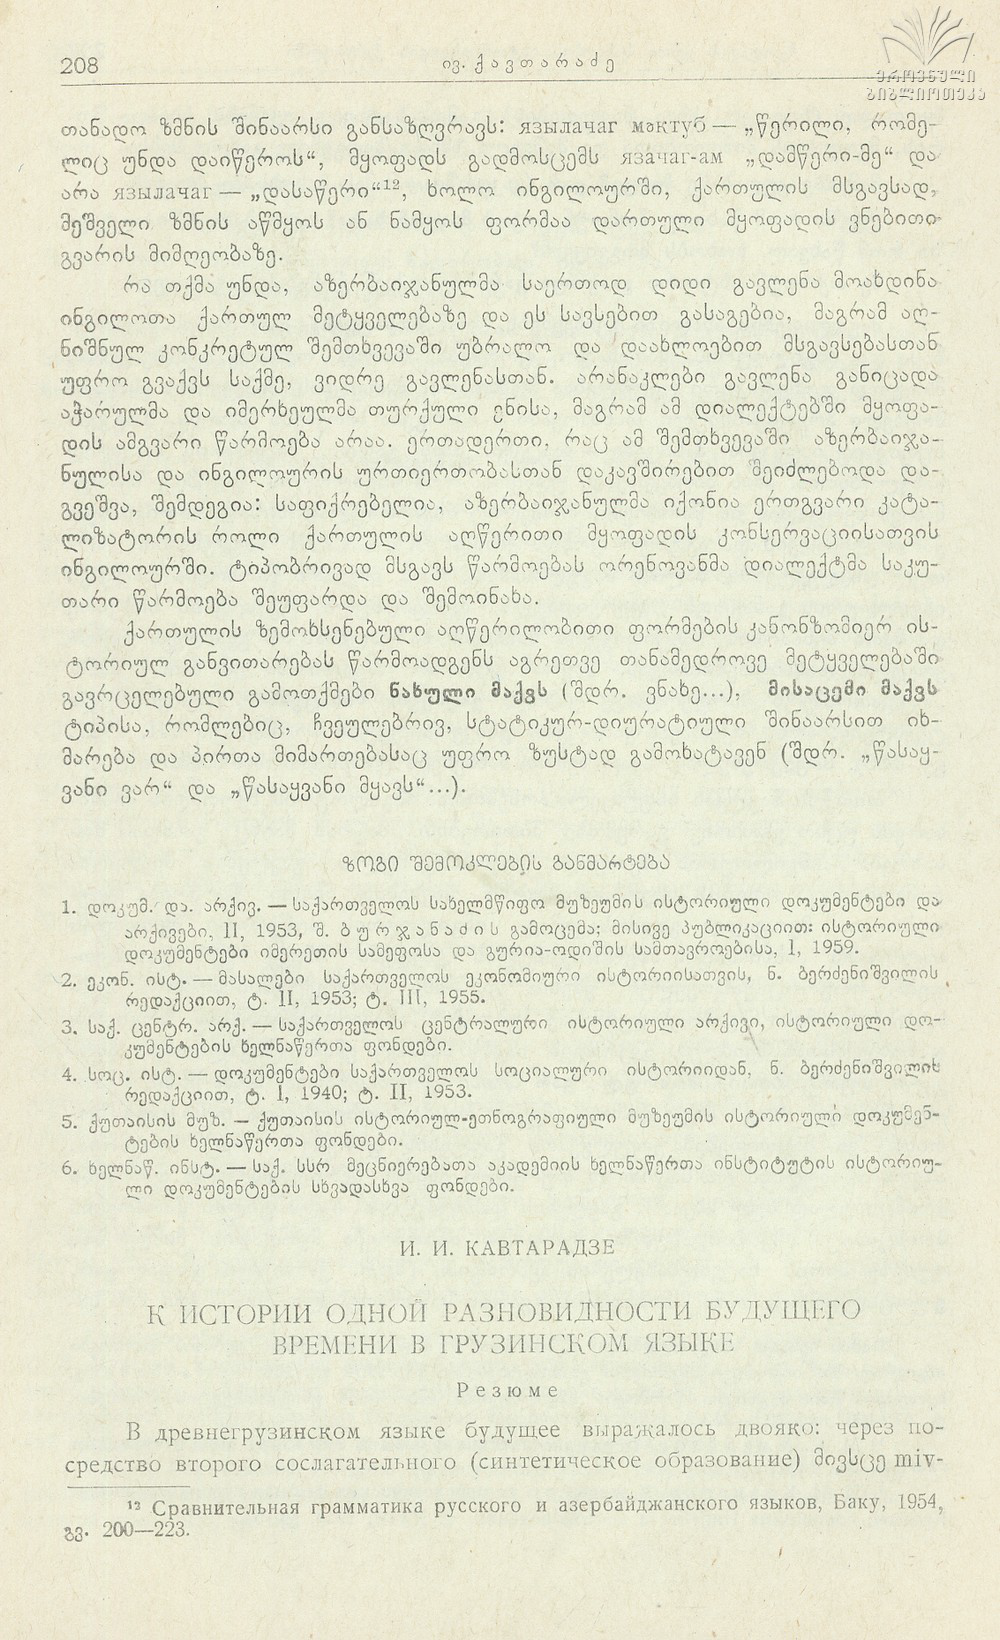 208
ივ. ქავთარაძე
ეროვნული
ბიბლიოთეკა
თანადო ზმნის შინაარსი განსაზღვრავს: язылачаг мәктуб — „წერილი, რომე-
ლიც უნდა დაიწეროს“, მყოფადს გადმოსცემს язачаг-ам „დამწერი-მე“ და
არა язылачаг — „დასაწერი“¹², ხოლო ინგილოურში, ქართულის მსგავსად,
მეშველი ზმნის აწმყოს ან ნამყოს ფორმაა დართული მყოფადის ვნებითი
გვარის მიმღეობაზე.
რა თქმა უნდა, აზერბაიჯანულმა საერთოდ დიდი გავლენა მოახდინა
ინგილოთა ქართულ მეტყველებაზე და ეს სავსებით გასაგებია, მაგრამ აღ-
ნიშნულ კონკრეტულ შემთხვევაში უბრალო და დაახლოებით მსგავსებასთან
უფრო გვაქვს საქმე, ვიდრე გავლენასთან. არანაკლები გავლენა განიცადა
აჭარულმა და იმერხეულმა თურქული ენისა, მაგრამ ამ დიალექტებში მყოფა-
დის ამგვარი წარმოება არაა. ერთადერთი, რაც ამ შემთხვევაში აზერბაიჯა-
ნულისა და ინგილოურის ურთიერთობასთან დაკავშირებით შეიძლებოდა და-
გვეშვა, შემდეგია: საფიქრებელია, აზერბაიჯანულმა იქონია ერთგვარი კატა-
ლიზატორის როლი ქართულის აღწერითი მყოფადის კონსერვაციისათვის
ინგილოურში. ტიპობრივად მსგავს წარმოებას ორენოვანმა დიალექტმა საკუ-
თარი წარმოება შეუფარდა და შემოინახა.
ქართულის ზემოხსენებული აღწერილობითი ფორმების კანონზომიერ ის-
ტორიულ განვითარებას წარმოადგენს აგრეთვე თანამედროვე მეტყველებაში
გავრცელებული გამოთქმები ნახული მაქვს (შდრ. ვნახე...), მისაცემი მაქვს
ტიპისა, რომლებიც, ჩვეულებრივ, სტატიკურ-დიურატიული შინაარსით იხ-
მარება და პირთა მიმართებასაც უფრო ზუსტად გამოხატავენ (შდრ. „წასაყ-
ვანი ვარ“ და „წასაყვანი მყავს“...).
ზოგი შემოკლების განმარტება
1. დოკუმ. და. არქივ. — საქართველოს სახელმწიფო მუზეუმის ისტორიული დოკუმენტები და
არქივები, II, 1953, შ. ბურჯანაძის გამოცემა; მისივე პუბლიკაციით: ისტორიული
დოკუმენტები იმერეთის სამეფოსა და გურია-ოდიშის სამთავროებისა, I, 1959.
2. ეკონ. ისტ. — მასალები საქართველოს ეკონომიური ისტორიისათვის, ნ. ბერძენიშვილის
რედაქციით, ტ. II, 1953; ტ. III, 1955.
3. საქ. ცენტრ. არქ. — საქართველოს ცენტრალური ისტორიული არქივი, ისტორიული დო-
კუმენტების ხელნაწერთა ფონდები.
4. სოც. ისტ. — დოკუმენტები საქართველოს სოციალური ისტორიიდან, ნ. ბერძენიშვილის
რედაქციით, ტ. I, 1940; ტ. II, 1953.
5. ქუთაისის მუზ. — ქუთაისის ისტორიულ-ეთნოგრაფიული მუზეუმის ისტორიული დოკუმენ-
ტების ხელნაწერთა ფონდები.
6. ხელნაწ. ინსტ. — საქ. სსრ მეცნიერებათა აკადემიის ხელნაწერთა ინსტიტუტის ისტორიუ-
ლი დოკუმენტების სხვადასხვა ფონდები.
И. И. КАВТАРАДЗЕ
К ИСТОРИИ ОДНОЙ РАЗНОВИДНОСТИ БУДУЩЕГО
ВРЕМЕНИ В ГРУЗИНСКОМ ЯЗЫКЕ
Резюме
В древнегрузинском языке будущее выражалось двояко: через по-
средство второго сослагательного (синтетическое образование) მივსცე miv-
¹² Сравнительная грамматика русского и азербайджанского языков, Баку, 1954,
გვ. 200—223.